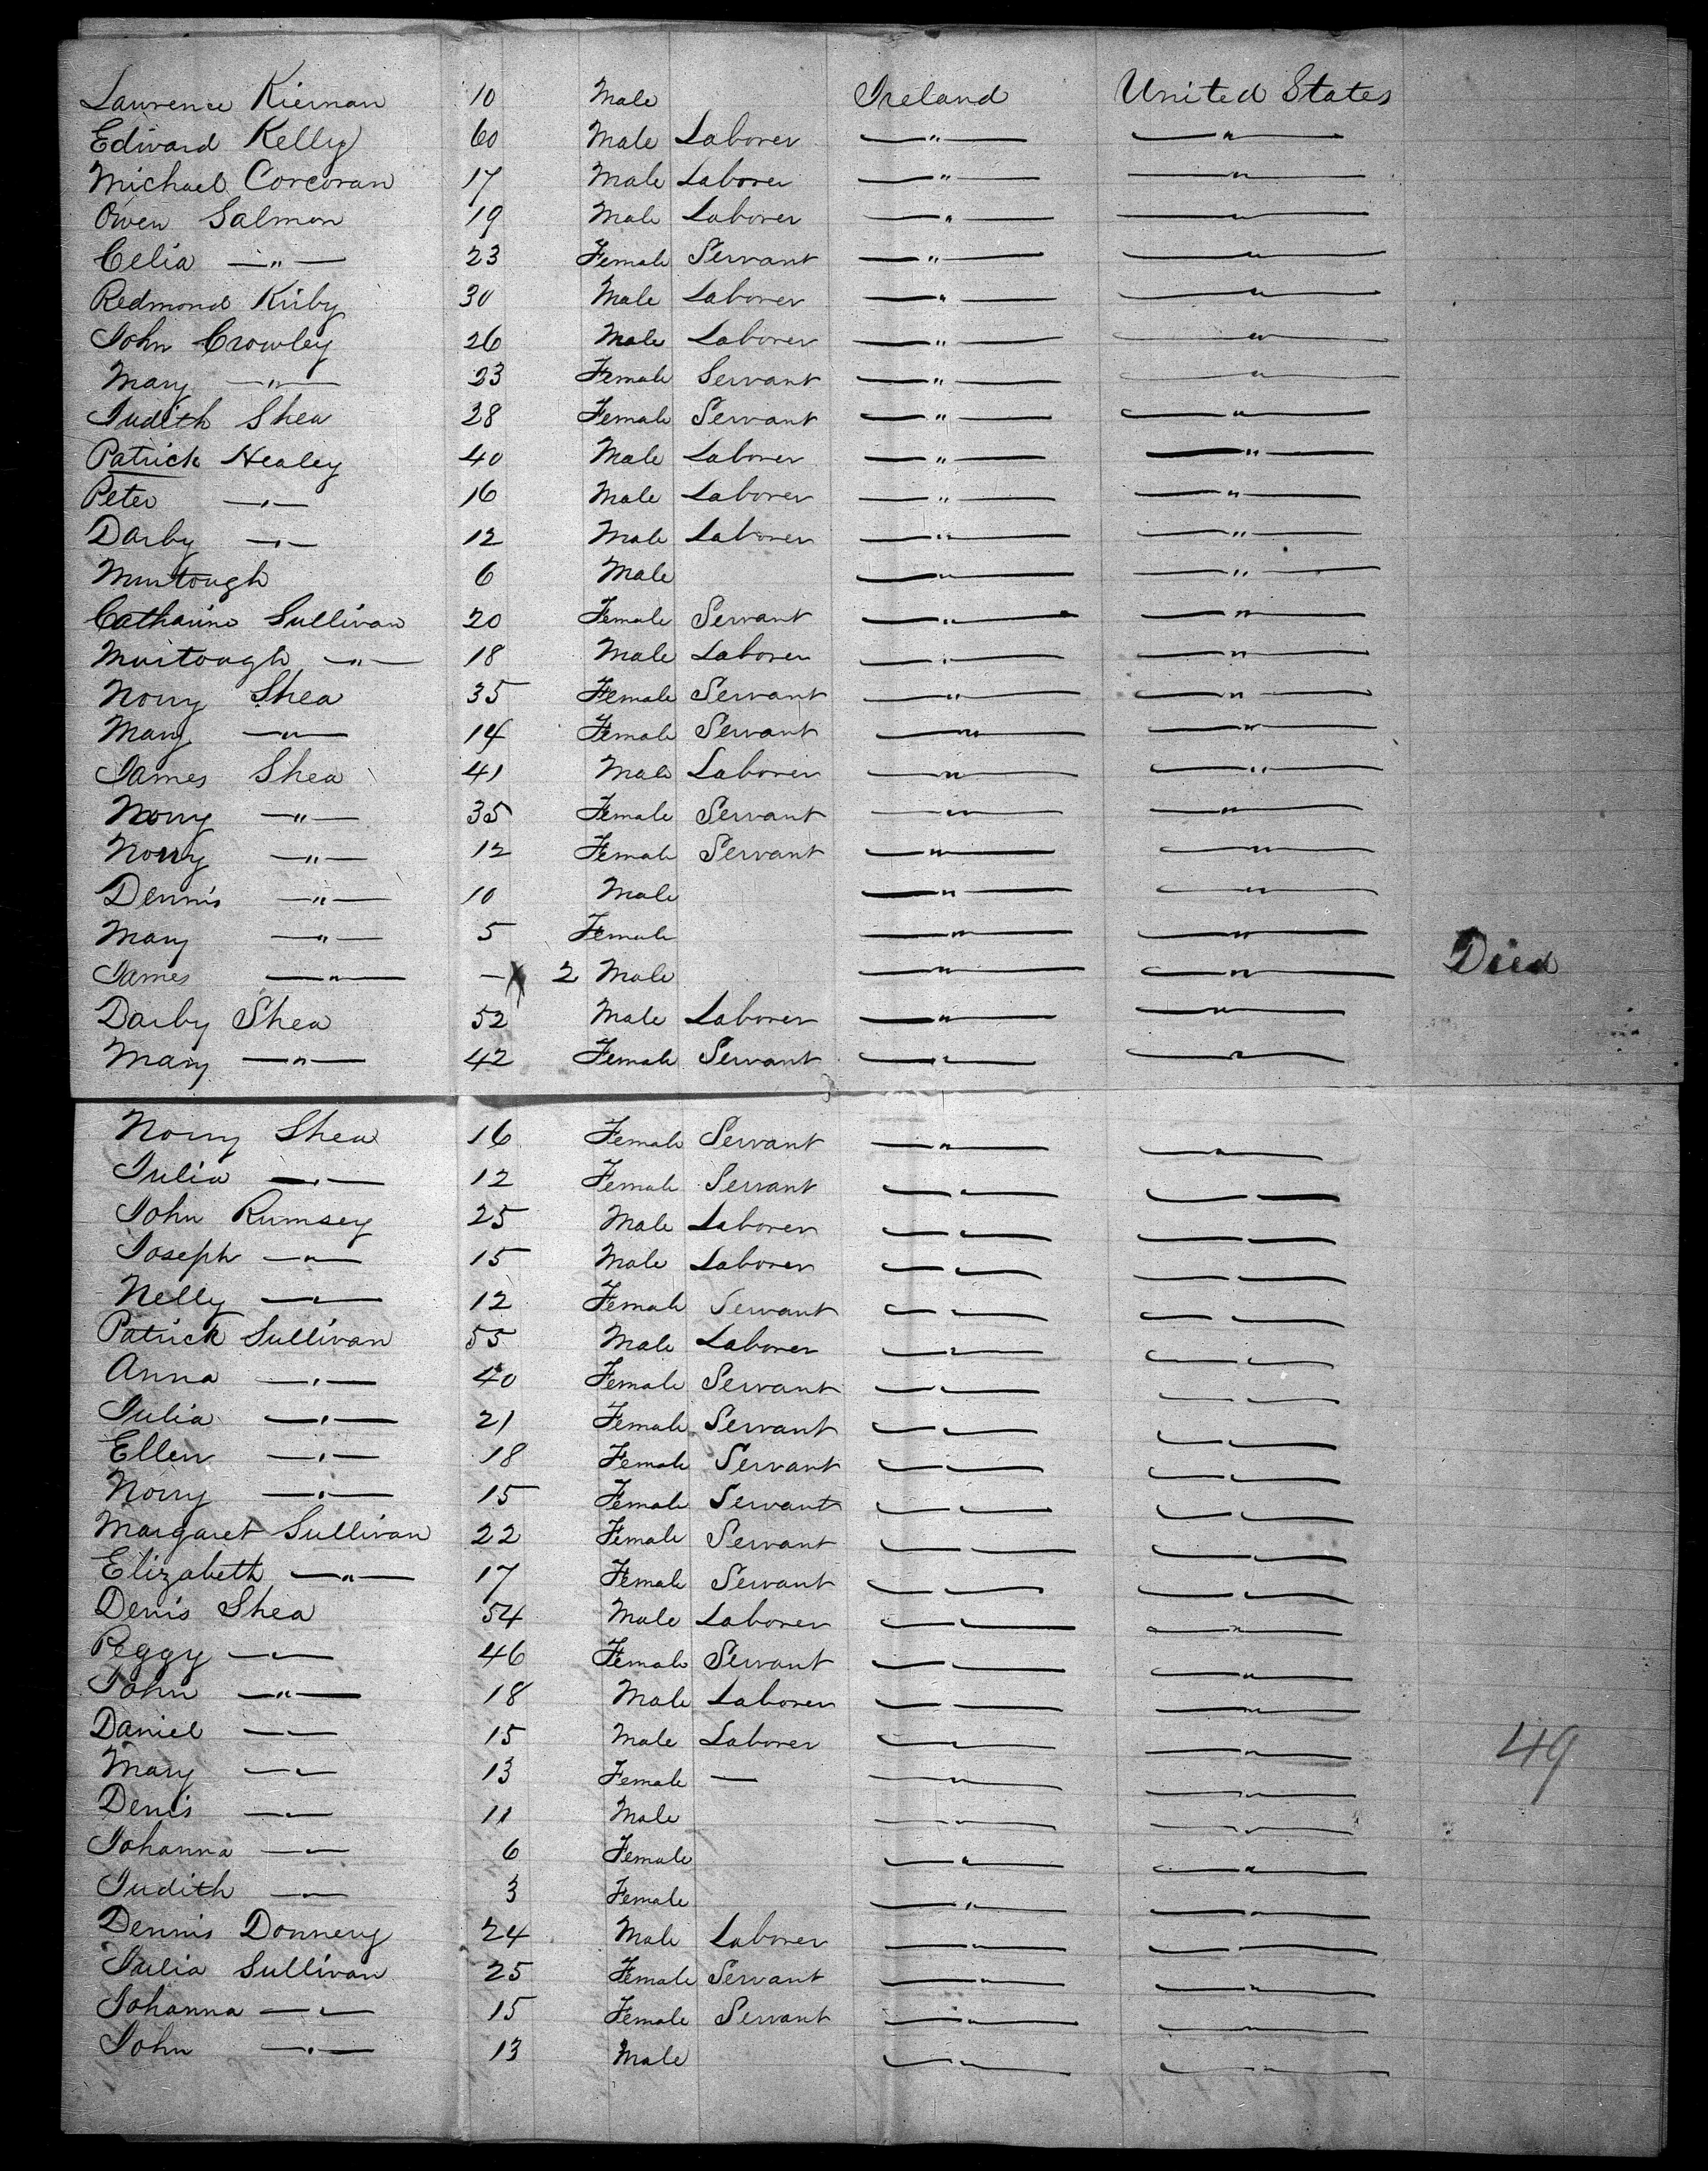 Lawrence Kiernan 10 Male Ireland United States
Edward Kelly 60 Male Laborer — " — — " —
Michael Corcoran 17 Male Laborer — " — — " —
Owen Salmon 19 Male Laborer — " — — " —
Celia — " — 23 Female Servant — " — — " —
Redmond Kirby 30 Male Laborer — " — — " —
John Crowley 26 Male Laborer — " — — " —
Mary — " — 23 Female Servant — " — — " —
Judith Shea 28 Female Servant — " — — " —
Patrick Healey 40 Male Laborer — " — — " —
Peter — " — 16 Male Laborer — " — — " —
Darby — " — 12 Male Laborer — " — — " —
Murtough 6 Male — " — — " —
Catharine Sullivan 20 Female Servant — " — — " —
Murtough — " — 18 Male Laborer — " — — " —
Norry Shea 35 Female Servant — " — — " —
Mary — " — 14 Female Servant — " — — " —
James Shea 41 Male Laborer — " — — " —
Norry — " — 35 Female Servant — " — — " —
Norry — " — 12 Female Servant — " — — " —
Dennis — " — 10 Male — " — — " —
Mary — " — 5 Female — " — — " —
James — " — — 2 Male — " — — " — Died
Darby Shea 52 Male Laborer — " — — " —
Mary — " — 42 Female Servant — " — — " —
Norry Shea 16 Female Servant — " — — " —
Julia — " — 12 Female Servant — " — — " —
John Rumsey 25 Male Laborer — " — — " —
Joseph — " — 15 Male Laborer — " — — " —
Nelly — " — 12 Female Servant — " — — " —
Patrick Sullivan 55 Male Laborer — " — — " —
Anna — " — 40 Female Servant — " — — " —
Julia — " — 21 Female Servant — " — — " —
Ellen — " — 18 Female Servant — " — — " —
Norry — " — 15 Female Servant — " — — " —
Margaret Sullivan 22 Female Servant — " — — " —
Elizabeth — " — 17 Female Servant — " — — " —
Denis Shea 54 Male Laborer — " — — " —
Peggy — " — 46 Female Servant — " — — " —
John — " — 18 Male Laborer — " — — " —
Daniel — " — 15 Male Laborer — " — — " — 49
Mary — " — 13 Female — — " — — " —
Denis — " — 11 Male — " — — " —
Johanna — " — 6 Female — " — — " —
Judith — " — 3 Female — " — — " —
Dennis Donnery 24 Male Laborer — " — — " —
Julia Sullivan 25 Female Servant — " — — " —
Johanna — " — 15 Female Servant — " — — " —
John — " — 13 Male — " — — " —